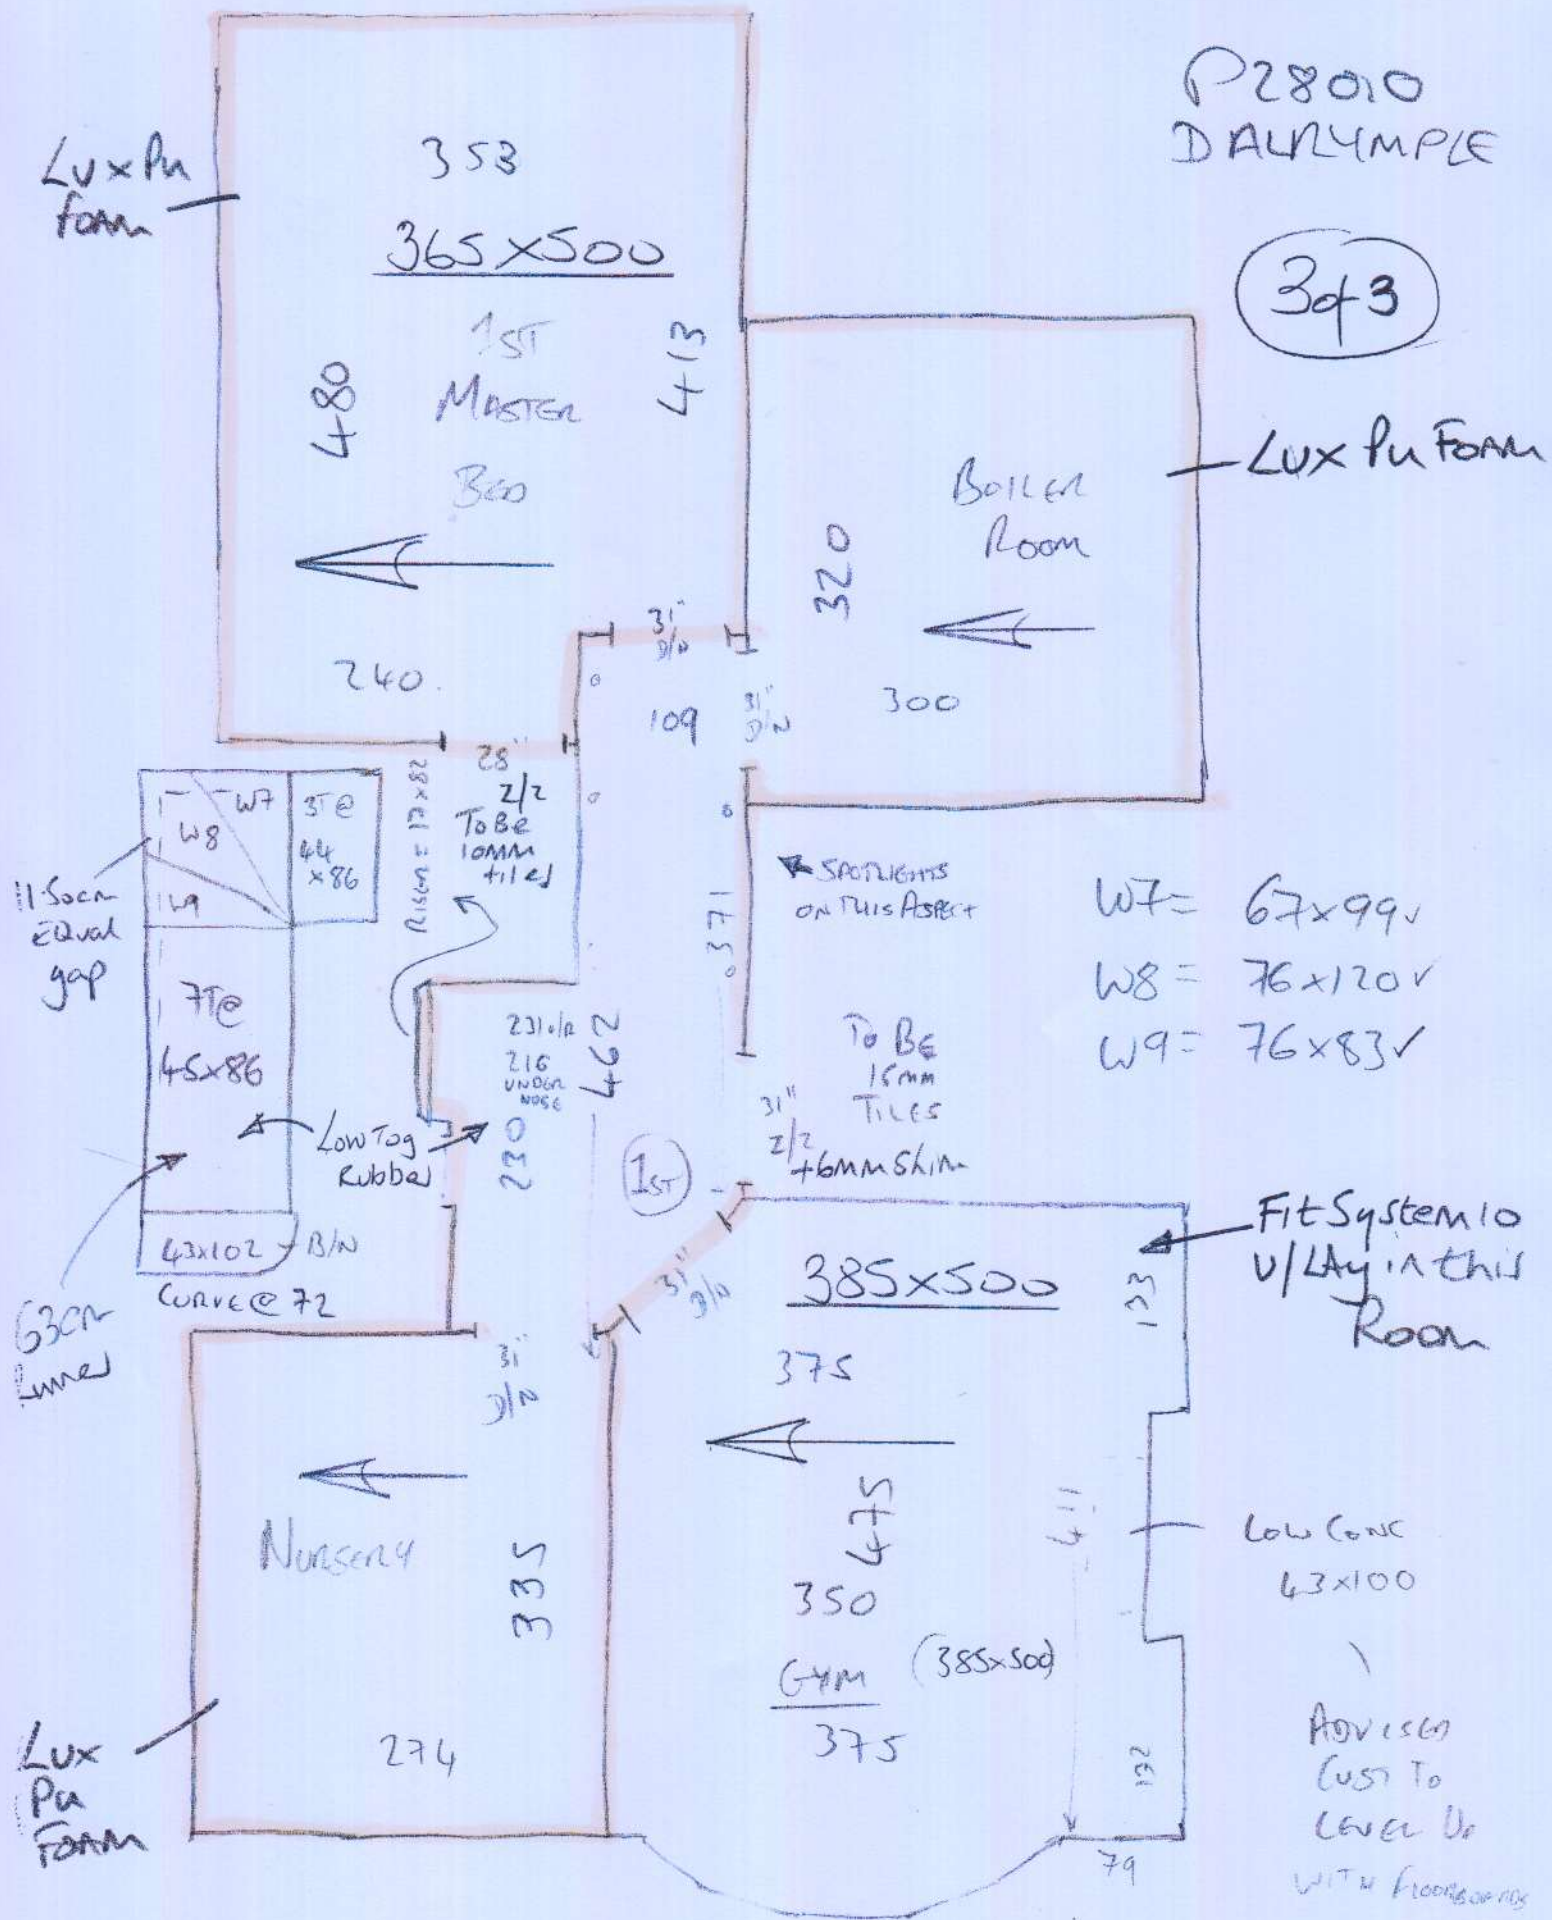 P28010
DALRYMPLE
3of3
Lux Pu
Foam
353
365x500
1ST
MASTER
BED
480
413
240
31"
D/N
109
31"
D/N
BOILER
ROOM
320
300
LUX Pu FOAM
28"
Z/Z
To Be
10MM
tiled
RISER = 17x82
W7
W8
W9
3T@
44
x86
11.5ocm
EQual
gap
7T@
45x86
Low Tog
Rubber
43x102 - B/N
CURVE @ 72
63cm
runner
SPOTLIGHTS
ON THIS ASPECT
371
W7= 67x99✓
W8= 76x120✓
W9= 76x83✓
231 o/a
216
UNDER
NOSE
462
230
1ST
To BE
15MM
TILES
31"
Z/Z
+6MM Shim
31"
D/N
385x500
133
Fit System 10
U/LAy in this
Room
375
31"
D/N
NURSERY
335
274
Lux
Pu
FOAM
475
411
350
GYM
(385x500)
375
132
79
LOW CONC
43x100
ADVISED
CUST To
LEVEL UP
WITH FLOORBOARDS